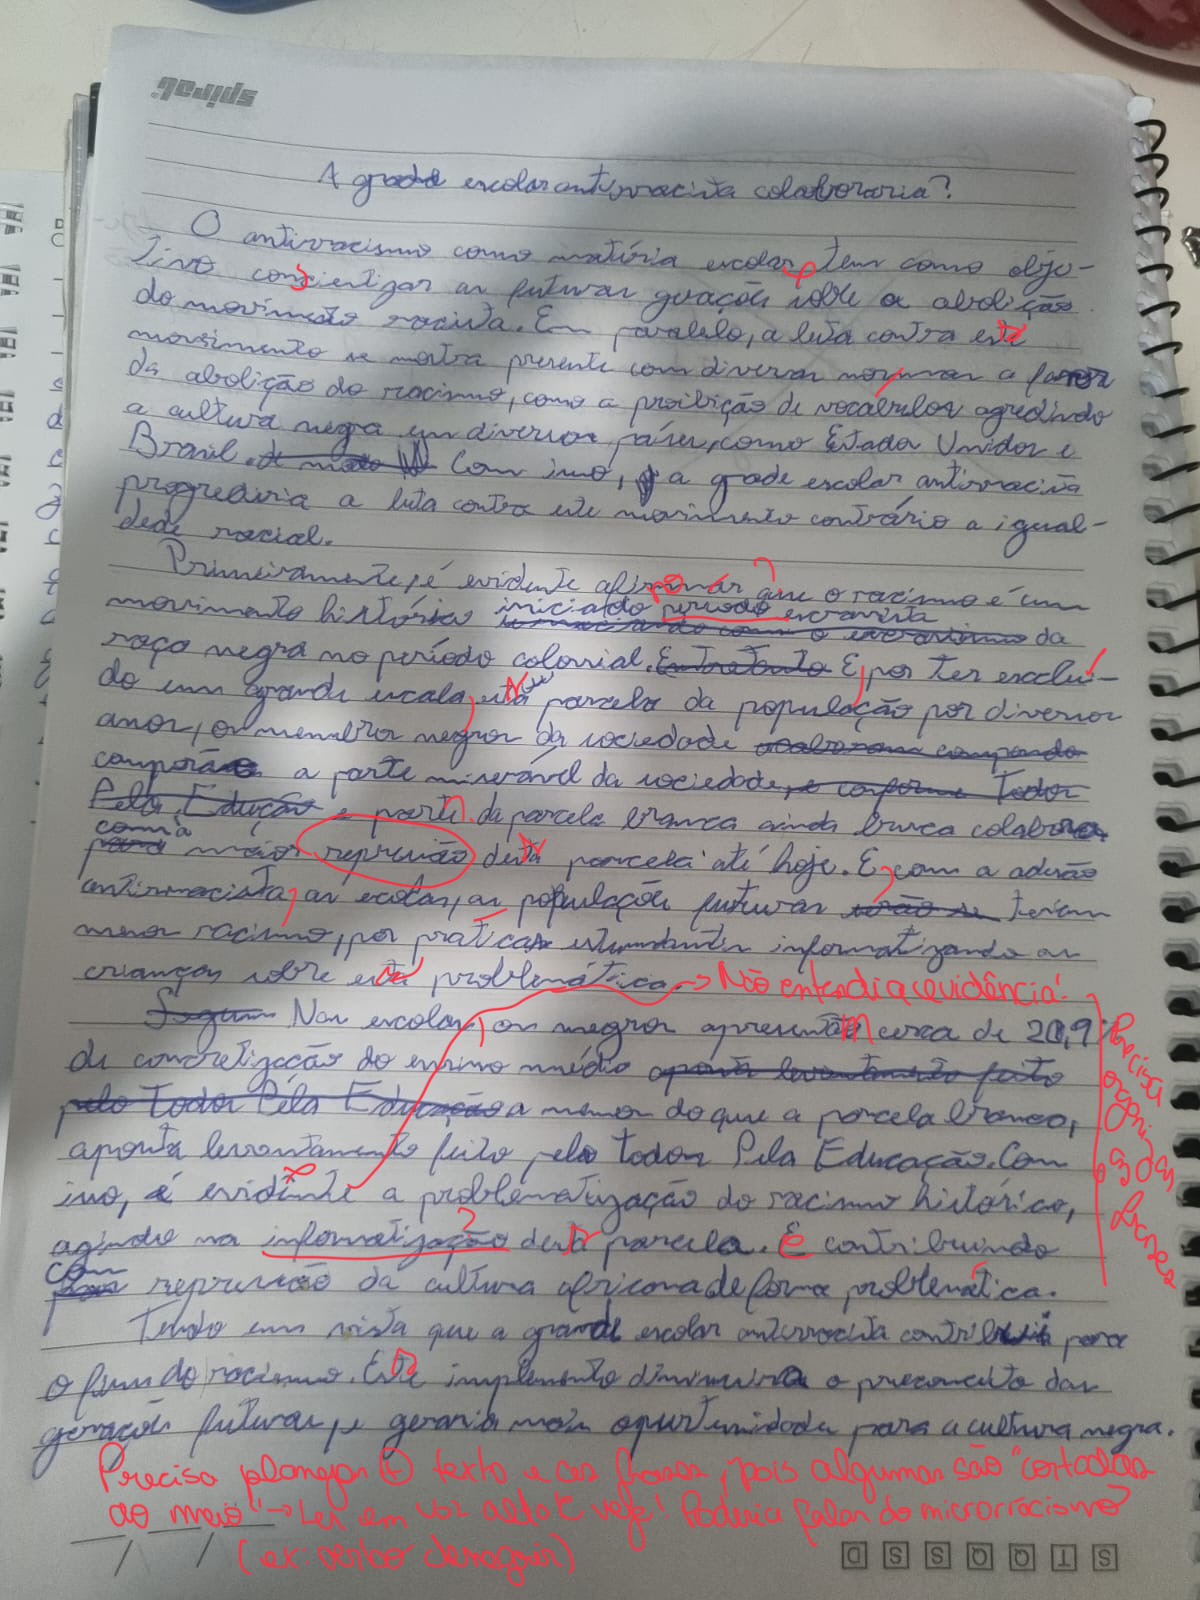 spiral
A grade escolar antirracista colaboraria?
O antirracismo como matéria escolar tem como obje-
tivo conscientizar as futuras gerações sobre a abolição
do movimento racista. Em paralelo, a luta contra este
movimento se mostra presente com diversas normas a favor
da abolição do racismo, como a proibição de vocábulos agredindo
a cultura negra em diversos países, como Estados Unidos e
Brasil. Com isso, a grade escolar antirracista
progrediria a luta contra este movimento contrário a igual-
dade racial.
Primeiramente, é evidente afirmar que o racismo é um
movimento histórico iniciado periodo escravista da
raça negra no período colonial. E por ter exclui-
do em grande escala, esta parcela da população por diversos
anos, os membros negros da sociedade
comporão a parte miserável da sociedade,
e parte da parcela branca ainda busca colaborar
com a maior represião desta parcela até hoje. E com a adesão
antirracista, as escolas, as populações futuras teriam
menos racismo, por praticas informatizando as
crianças sobre esta problemática. → Não entendi a evidência!
Nas escolas, os negros apresentão cerca de 20,9%
de concretização do ensino médio
a menos do que a parcela branca,
aponta levantamento feito pelo Todos Pela Educação. Com
isso, é evidente a problematização do racismo histórico,
agindo na informatização desta parcela. E contribuindo
com repressão da cultura africana de forma problemática.
Precisa organizar as frases
Tendo em vista que a grade escolar antirracista contribuiria para
o fim do racismo. Este implemento diminuiria o preconceito das
gerações futuras, e geraria mais oportunidade para a cultura negra.
Precisa planejar (+) texto e as frases, pois algumas são "cortadas
ao meio" → Ler em voz alta e veja! Poderia falar do microrracismo
(ex: verbo denegrir)
S T Q Q S S D